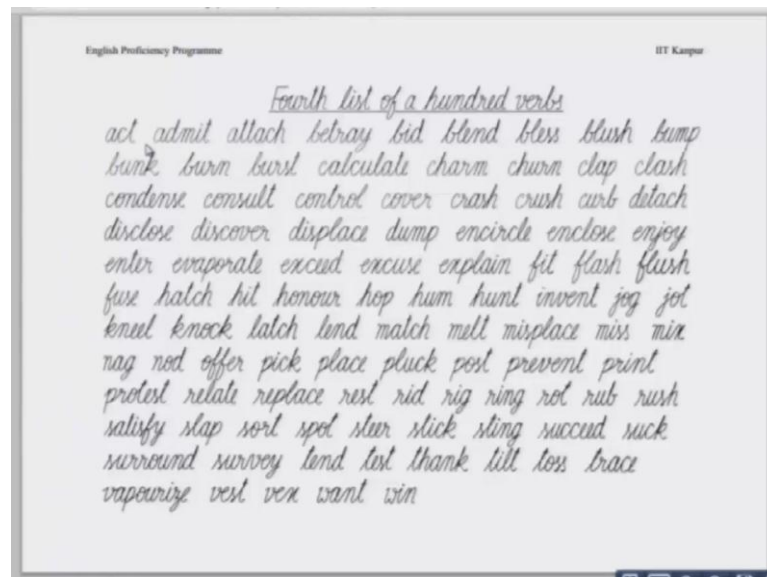 English Proficiency Programme IIT Kanpur
Fourth list of a hundred verbs
act admit attach betray bid blend bless blush bump
bunk burn burst calculate charm churn clap clash
condense consult control cover crash crush curb detach
disclose discover displace dump encircle enclose enjoy
enter evaporate exceed excuse explain fit flash flush
fuse hatch hit honour hop hum hunt invent jog jot
kneel knock latch lend match melt misplace miss mix
nag nod offer pick place pluck post prevent print
protest relate replace rest rid rig ring rot rub rush
satisfy slap sort spot steer stick sting succeed suck
surround survey tend test thank till toss trace
vapourize vest vex want win